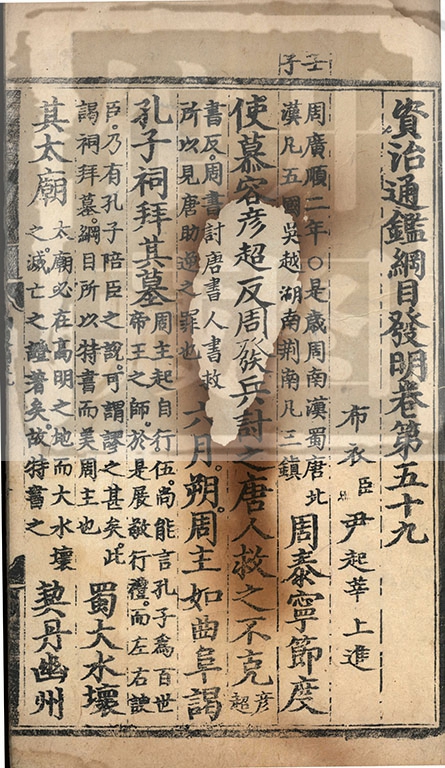 壬子
資治通鑑綱目發明卷第五十九
布衣臣尹起莘上進
周廣順二年○是歲周南漢蜀唐北
漢凡五國吳越湖南荆南凡三鎮
周泰寧節度
使慕容彦超反周發兵討之唐人救之不克
彦
超
書反。周書討唐書人書救
所以見唐助逆之罪也
六月。朔。周主如曲阜謁
孔子祠拜其墓
周主起自行伍。尚能言孔子爲百世
帝王之師。於是展敬行禮。而左右諛
臣。乃有孔子陪臣之說。可謂謬之甚矣。此
謁祠拜墓。綱目所以特書而美周主也
蜀大水壞
其太廟
太廟必在高明之地而大水壞
之。滅亡之證著矣。故特書之
契丹幽州